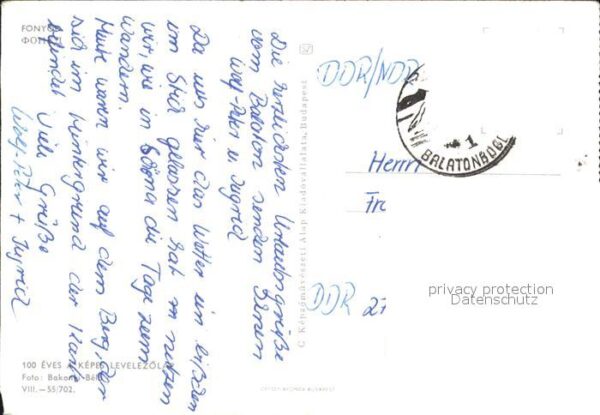 FONYÓD
ФОНЬОД
Die herzlichsten Urlaubsgrüße
vom Balaton senden Ihnen
Wolf-Peter u. Ingrid
Da uns hier das Wetter ein bißchen
im Stich gelassen hat, nutzen
wir, wie in die Tage zum
Wandern.
Heute waren wir auf dem Berg, der
sich im Hintergrund der Karte
befindet.
Viele Grüße
Wolf-Peter + Ingrid
100 ÉVES A KÉPES LEVELEZŐLAP
Foto: Bakonyi Béla
VIII.—55/702.
C Képzőművészeti Alap Kiadóvállalata, Budapest
DDR/NDR
BALATONBOGL
1
Herrn
Fr
DDR 27
privacy protection
Datenschutz